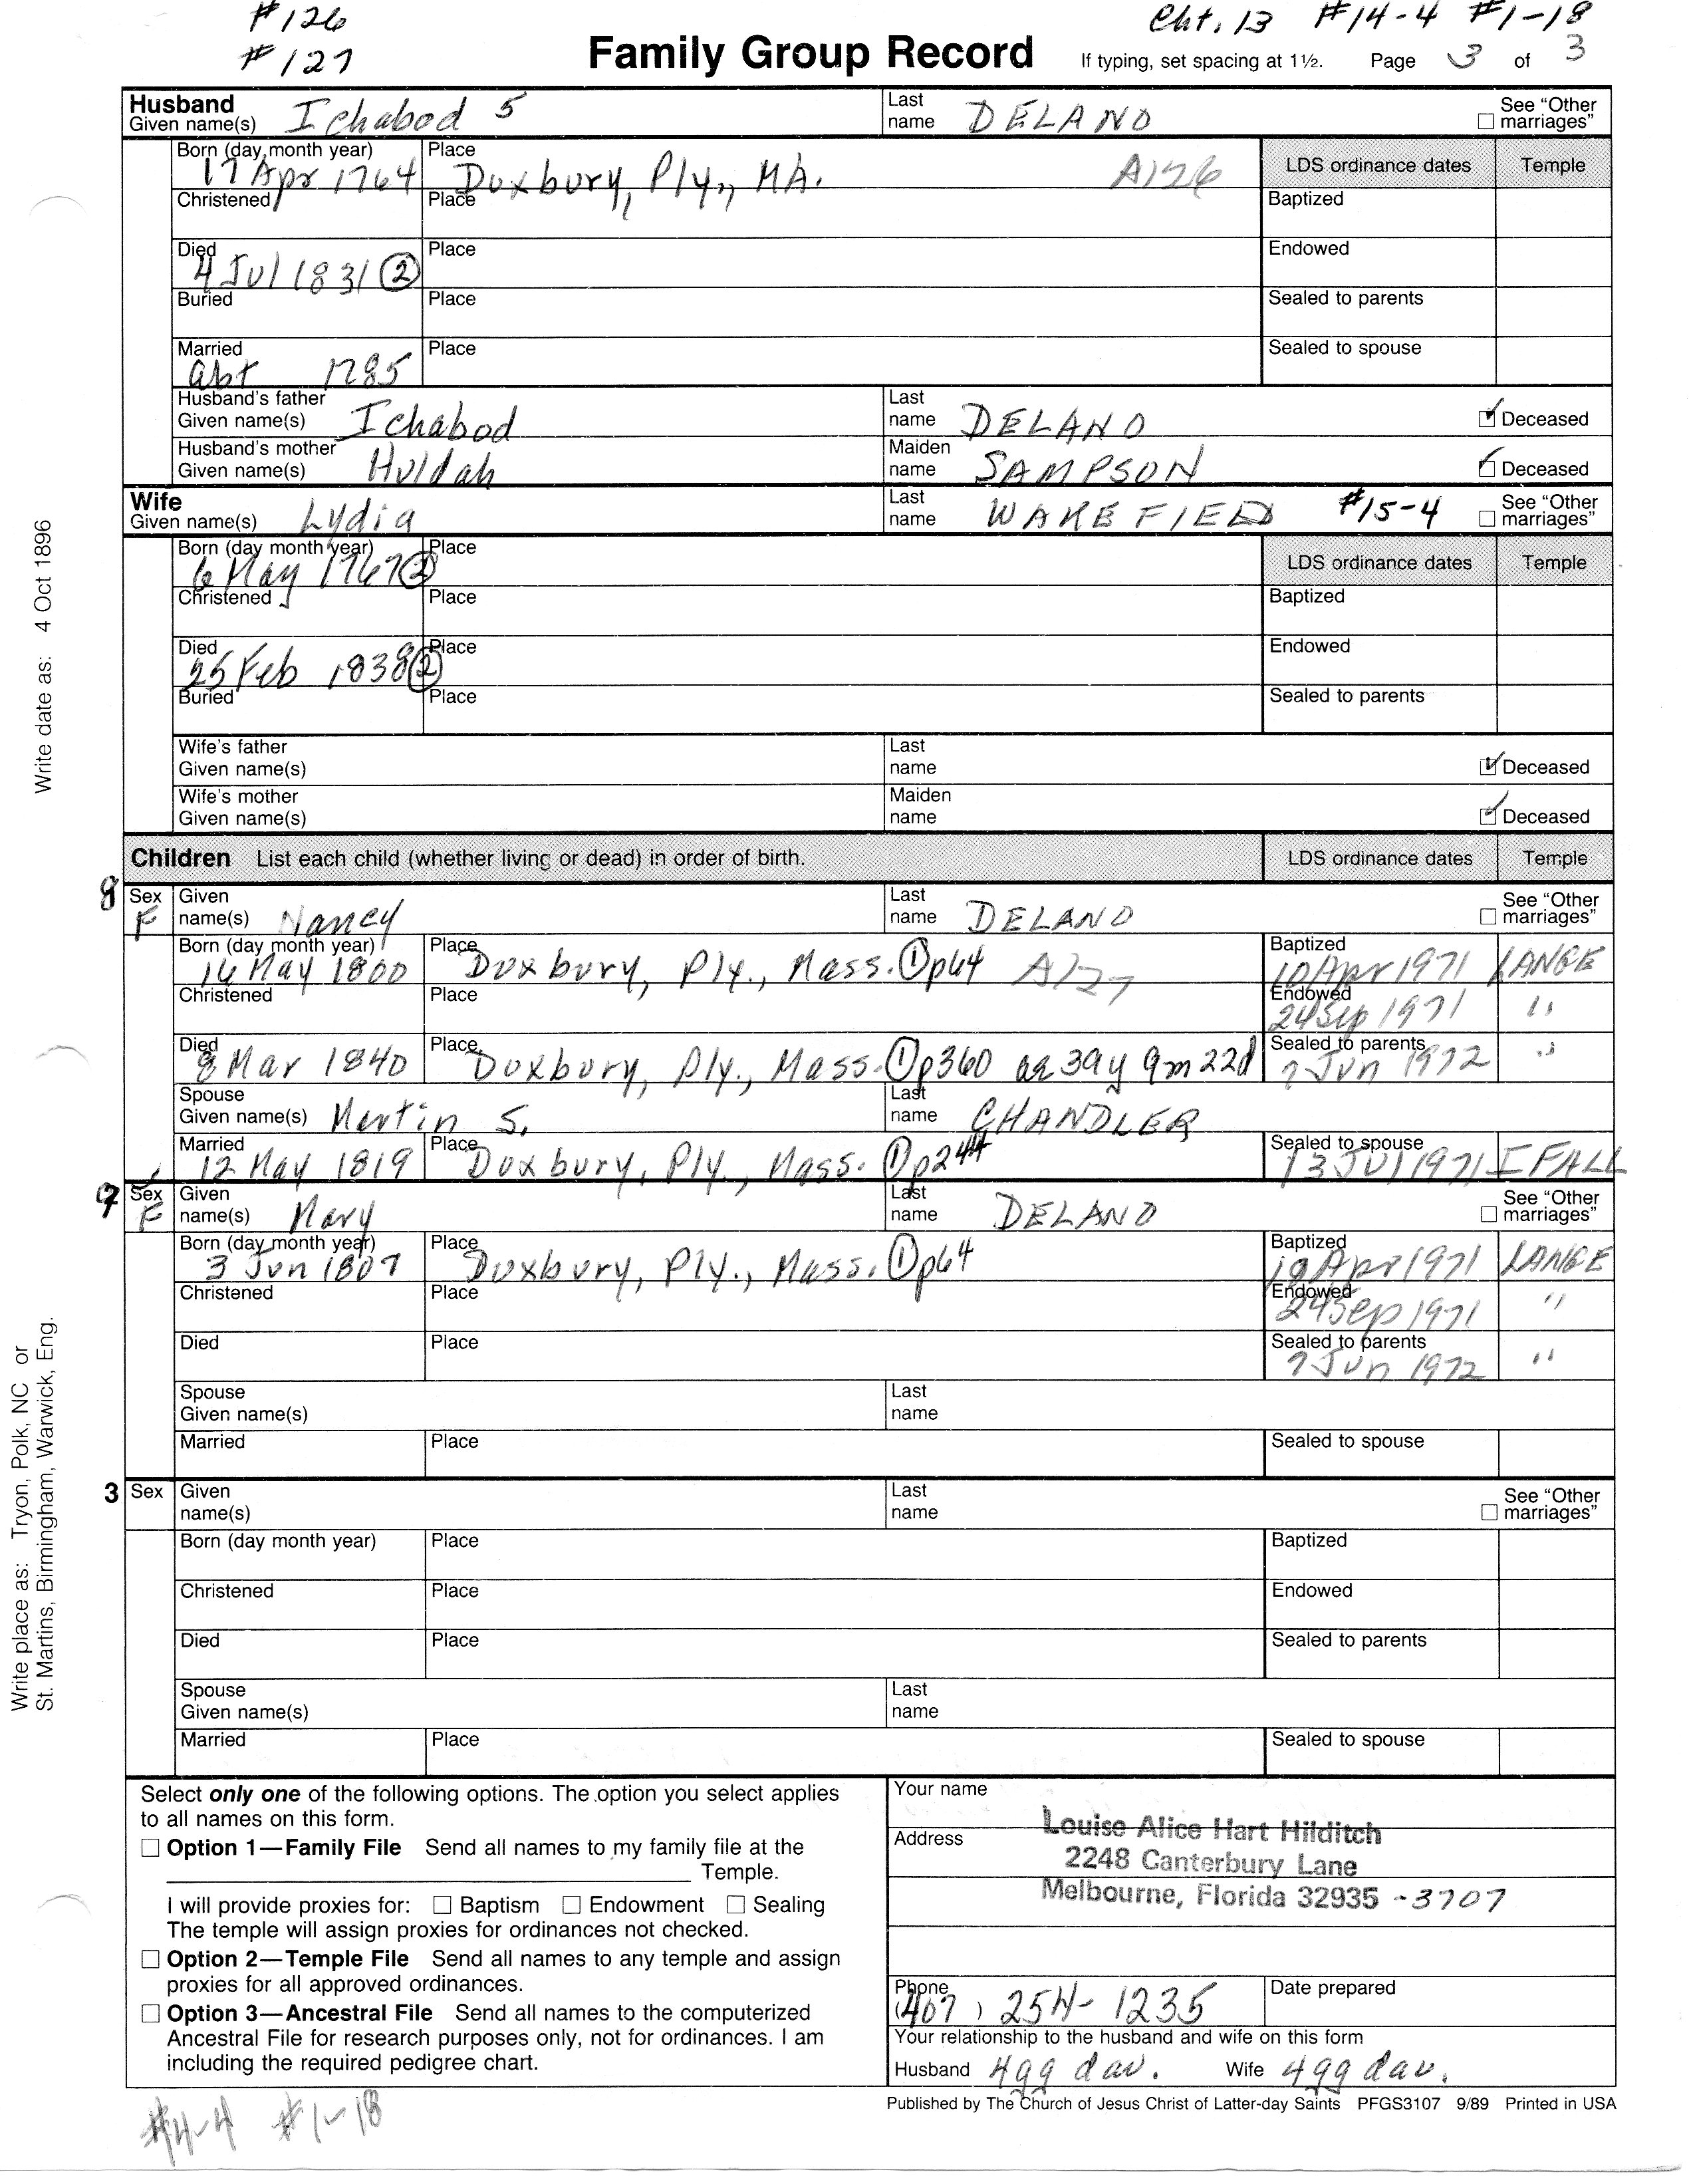 #126 Cht. 13 #14-4 #1-18
#127 Family Group Record If typing, set spacing at 1½. Page 3 of 3
Husband Given name(s) Ichabod 5 Last name DELANO See "Other marriages"
Born (day month year) 17 Apr 1764 Place Duxbury, Ply., MA. A126 LDS ordinance dates Temple
Christened Place Baptized
Died 4 Jul 1831 ② Place Endowed
Buried Place Sealed to parents
Married abt 1785 Place Sealed to spouse
Husband's father Given name(s) Ichabod Last name DELANO Deceased
Husband's mother Given name(s) Huldah Maiden name SAMPSON Deceased
Wife Given name(s) Lydia Last name WAKEFIELD #15-4 See "Other marriages"
Born (day month year) 6 May 1767 ② Place LDS ordinance dates Temple
Christened Place Baptized
Died 25 Feb 1838 ② Place Endowed
Buried Place Sealed to parents
Wife's father Given name(s) Last name Deceased
Wife's mother Given name(s) Maiden name Deceased
Children List each child (whether living or dead) in order of birth. LDS ordinance dates Temple
8 Sex F Given name(s) Nancy Last name DELANO See "Other marriages"
Born (day month year) 16 May 1800 Place Duxbury, Ply., Mass. ① p64 A127 Baptized 10 Apr 1971 LANGE
Christened Place Endowed 24 Sep 1971 "
Died 8 Mar 1840 Place Duxbury, Ply., Mass. ① p360 ae 39y 9m 22d Sealed to parents 7 Jun 1972 "
Spouse Given name(s) Martin S. Last name CHANDLER
Married 12 May 1819 Place Duxbury, Ply., Mass. ① p244 Sealed to spouse 13 Jul 1971 IFALL
9 Sex F Given name(s) Mary Last name DELANO See "Other marriages"
Born (day month year) 3 Jun 1807 Place Duxbury, Ply., Mass. ① p64 Baptized 10 Apr 1971 LANGE
Christened Place Endowed 24 Sep 1971 "
Died Place Sealed to parents 7 Jun 1972 "
Spouse Given name(s) Last name
Married Place Sealed to spouse
3 Sex Given name(s) Last name See "Other marriages"
Born (day month year) Place Baptized
Christened Place Endowed
Died Place Sealed to parents
Spouse Given name(s) Last name
Married Place Sealed to spouse
Select only one of the following options. The option you select applies
to all names on this form.
Option 1—Family File Send all names to my family file at the
Temple.
I will provide proxies for: Baptism Endowment Sealing
The temple will assign proxies for ordinances not checked.
Option 2—Temple File Send all names to any temple and assign
proxies for all approved ordinances.
Option 3—Ancestral File Send all names to the computerized
Ancestral File for research purposes only, not for ordinances. I am
including the required pedigree chart.
Your name Louise Alice Hart Hilditch
Address 2248 Canterbury Lane
Melbourne, Florida 32935 -3707
Phone (407) 254-1235 Date prepared
Your relationship to the husband and wife on this form
Husband 4gg dau. Wife 4gg dau.
Published by The Church of Jesus Christ of Latter-day Saints PFGS3107 9/89 Printed in USA
#4-4 #1-18
Write date as: 4 Oct 1896
Write place as: Tryon, Polk, NC or
St. Martins, Birmingham, Warwick, Eng.